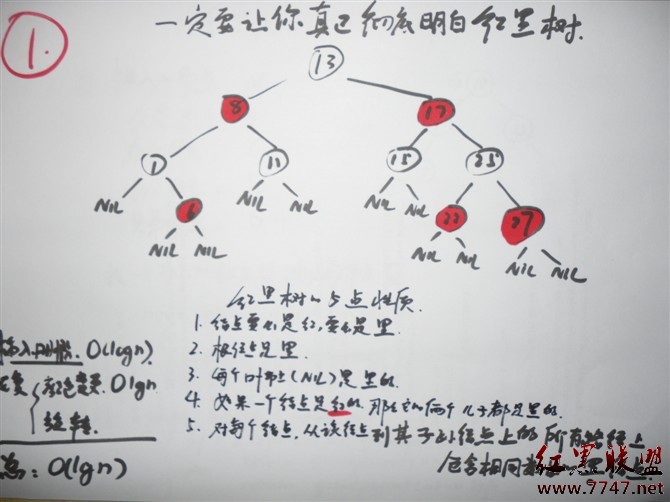 1.
一定要让你真正彻底明白红黑树.
13
8
17
1
11
15
25
NIL
6
NIL NIL
NIL NIL
22
27
NIL NIL
NIL NIL
NIL NIL
红黑树的5点性质.
1. 结点要么是红,要么是黑.
2. 根结点是黑.
3. 每个叶结点(NIL)是黑的.
4. 如果一个结点是红的,那么它的俩个儿子都是黑的.
5. 对每个结点,从该结点到其子孙结点上的所有路径上
包含相同数目的黑结点
插入 O(lgn)
颜色 O lgn
旋转.
总: O(lgn)
红黑联盟
www.7747.net